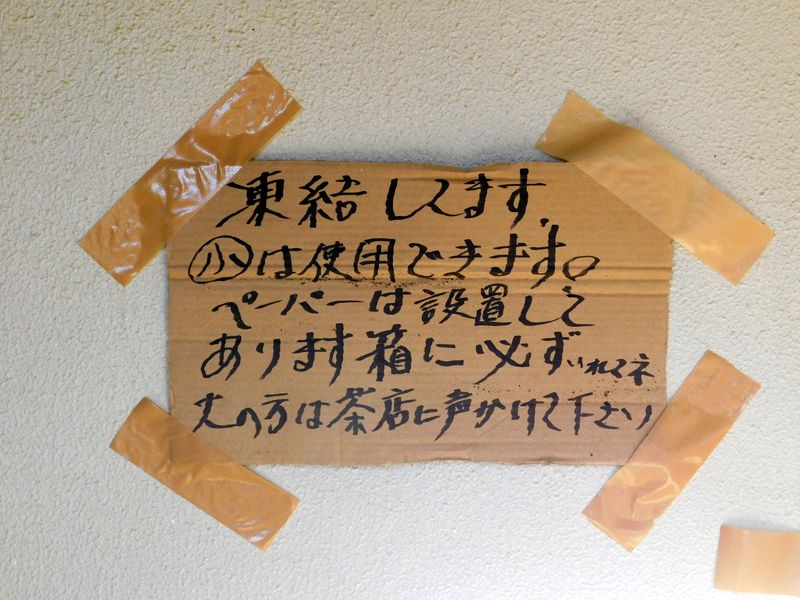 凍結してます.
小は使用できます。
ペーパーは設置して
あります箱に必ずいれてネ
大の方は茶店に声かけて下さい